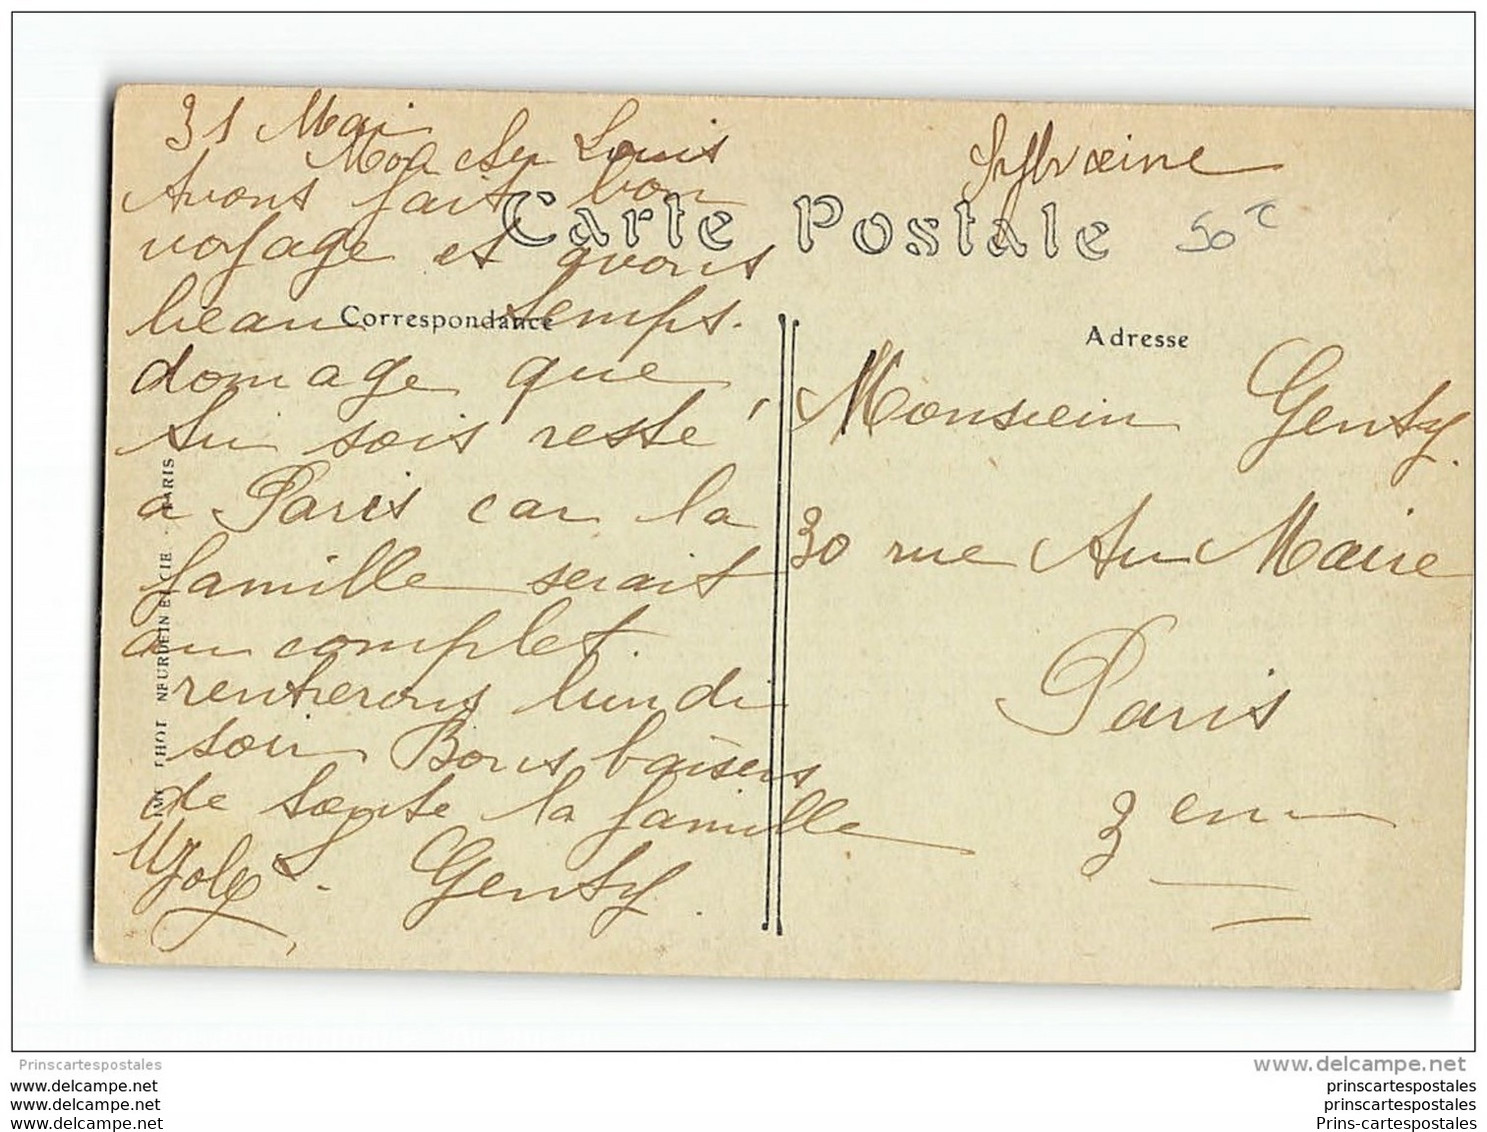 31 Mai
Mon cher Louis
Avons fait bon
voyage et avons
beau temps.
domage que
tu sois resté
a Paris car la
famille serait
au complet.
rentrerons lundi
soir Bons baisers
de toute la famille
Genty.
Carte Postale
Correspondance
Adresse
Sylvaine
50 c
Monsieur Genty.
30 rue Au Maire
Paris
3 em
IMP. PHOT. NEURDEIN ET CIE - PARIS
Prinscartespostales
www.delcampe.net
www.delcampe.net
www.delcampe.net
www.delcampe.net
prinscartespostales
prinscartespostales
Prins-cartespostales